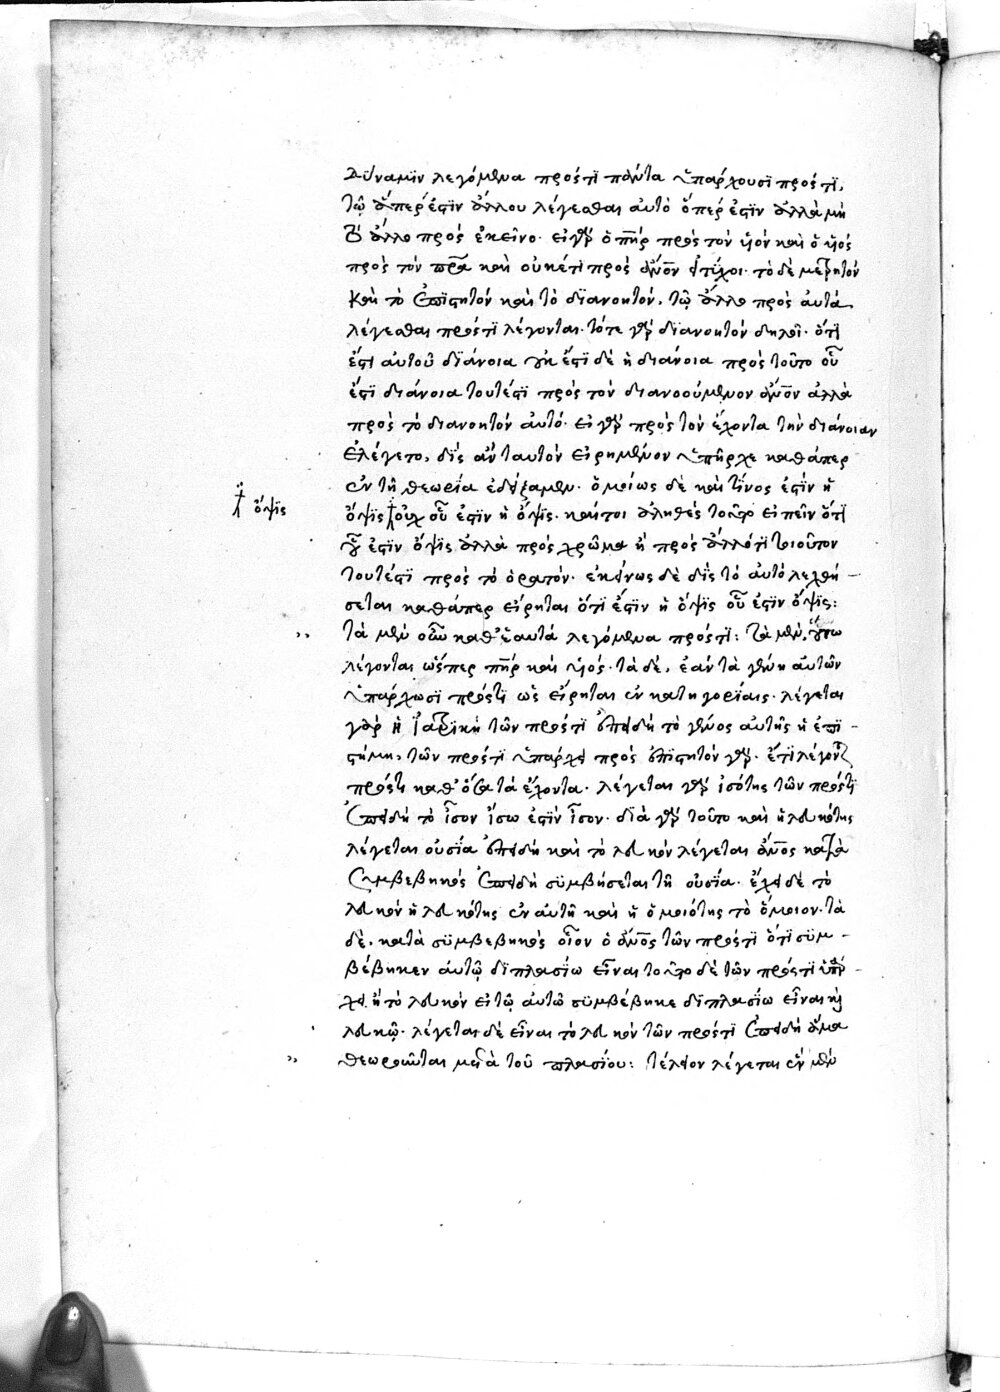 δύναμιν λεγόμενα πρόστι πάντα ὑπάρχουσι πρόστι,
τῷ ὅπερ ἐστὶν ἄλλου λέγεσθαι αὐτὸ ὅπερ ἐστὶν ἀλλὰ μὴ
τὸ ἄλλο πρὸς ἐκεῖνο. εἰ γὰρ ὁ πὴρ πρὸς τὸν υἱὸν καὶ ὁ υἱὸς
πρὸς τὸν πρα καὶ οὐκέτι πρὸς ἄνον εἰ τύχοι. τὸ δὲ μετρητὸν
καὶ τὸ ἐπιστητὸν καὶ τὸ διανοητὸν, τῷ ἄλλο πρὸς αὐτὰ
λέγεσθαι πρόστι λέγονται. τότε γὰρ διανοητὸν δηλοῖ. ὅτι
ἐστὶ αὐτοῦ διάνοια οὐκ ἔστι δὲ ἡ διάνοια πρὸς τοῦτο οὗ
ἐστὶ διάνοια τουτέστι πρὸς τὸν διανοούμενον ἄνον ἀλλὰ
πρὸς τὸ διανοητὸν αὐτό. εἰ γὰρ πρὸς τὸν ἔχοντα τὴν διάνοιαν
ἐλέγετο, δὶς ἂν ταυτὸν εἰρημένον ὑπῆρχε καθάπερ
ἐν τῇ θεωρία ἐδείξαμεν. ὁμοίως δὲ καὶ τίνος ἐστὶν ἡ
ὄψις οὐχ οὗ ἐστὶν ἡ ὄψις. καίτοι ἀληθὲς τοῦτο εἰπεῖν ὅτι
οὗ ἐστὶν ὄψις ἀλλὰ πρὸς χρῶμα ἢ πρὸς ἄλλό τι τοιοῦτον
τουτέστι πρὸς τὸ ὁρατόν. ἐκείνως δὲ δὶς τὸ αὐτὸ λεχθή-
σεται καθάπερ εἴρηται ὅτι ἐστὶν ἡ ὄψις οὗ ἐστὶν ὄψις:
τὰ μὲν οὖν καθ' ἑαυτὰ λεγόμενα πρόστι: τὰ μὲν, οὕτω
λέγονται ὥσπερ πὴρ καὶ υἱός. τὰ δὲ, ἐὰν τὰ γένη αὐτῶν
ὑπάρχωσι πρόστι ὡς εἴρηται ἐν κατηγορίαις. λέγεται
γὰρ ἡ ἰατρικὴ τῶν πρόστι ἐπειδὴ τὸ γένος αὐτῆς ἡ ἐπι-
στήμη, τῶν πρόστι ὑπάρχει πρὸς ἐπιστητὸν γάρ. ἔτι λέγοντ
πρόστι καθ' ὅσα τὰ ἔχοντα. λέγεται γὰρ ἰσότης τῶν πρόστι
ἐπειδὴ τὸ ἴσον ἴσω ἐστὶν ἴσον. διὰ γὰρ τοῦτο καὶ ἡ λευκότης
λέγεται οὐσία ἐπειδὴ καὶ τὸ λευκὸν λέγεται ἄνος κατὰ
συμβεβηκὸς ἐπειδὴ συμβήσεται τῇ οὐσία. ἔχει δὲ τὸ
λευκὸν ἡ λευκότης ἐν αὐτῇ καὶ ἡ ὁμοιότης τὸ ὅμοιον. τὰ
δὲ, κατὰ συμβεβηκὸς οἷον ὁ ἄνος τῶν πρόστι ὅτι συμ-
βέβηκεν αὐτῷ διπλασίω εἶναι τοῦτο δὲ τῶν πρόστι ὑπάρ-
χει ἢ τὸ λευκὸν εἰ τῷ αὐτῷ συμβέβηκε διπλασίω εἶναι καὶ
λευκῷ. λέγεται δὲ εἶναι τὸ λευκὸν τῶν πρόστι ἐπειδὴ ἅμα
θεωροῦνται μετὰ τοῦ πλασίου: τέλειον λέγεται ἓν μὲν
ὄψις